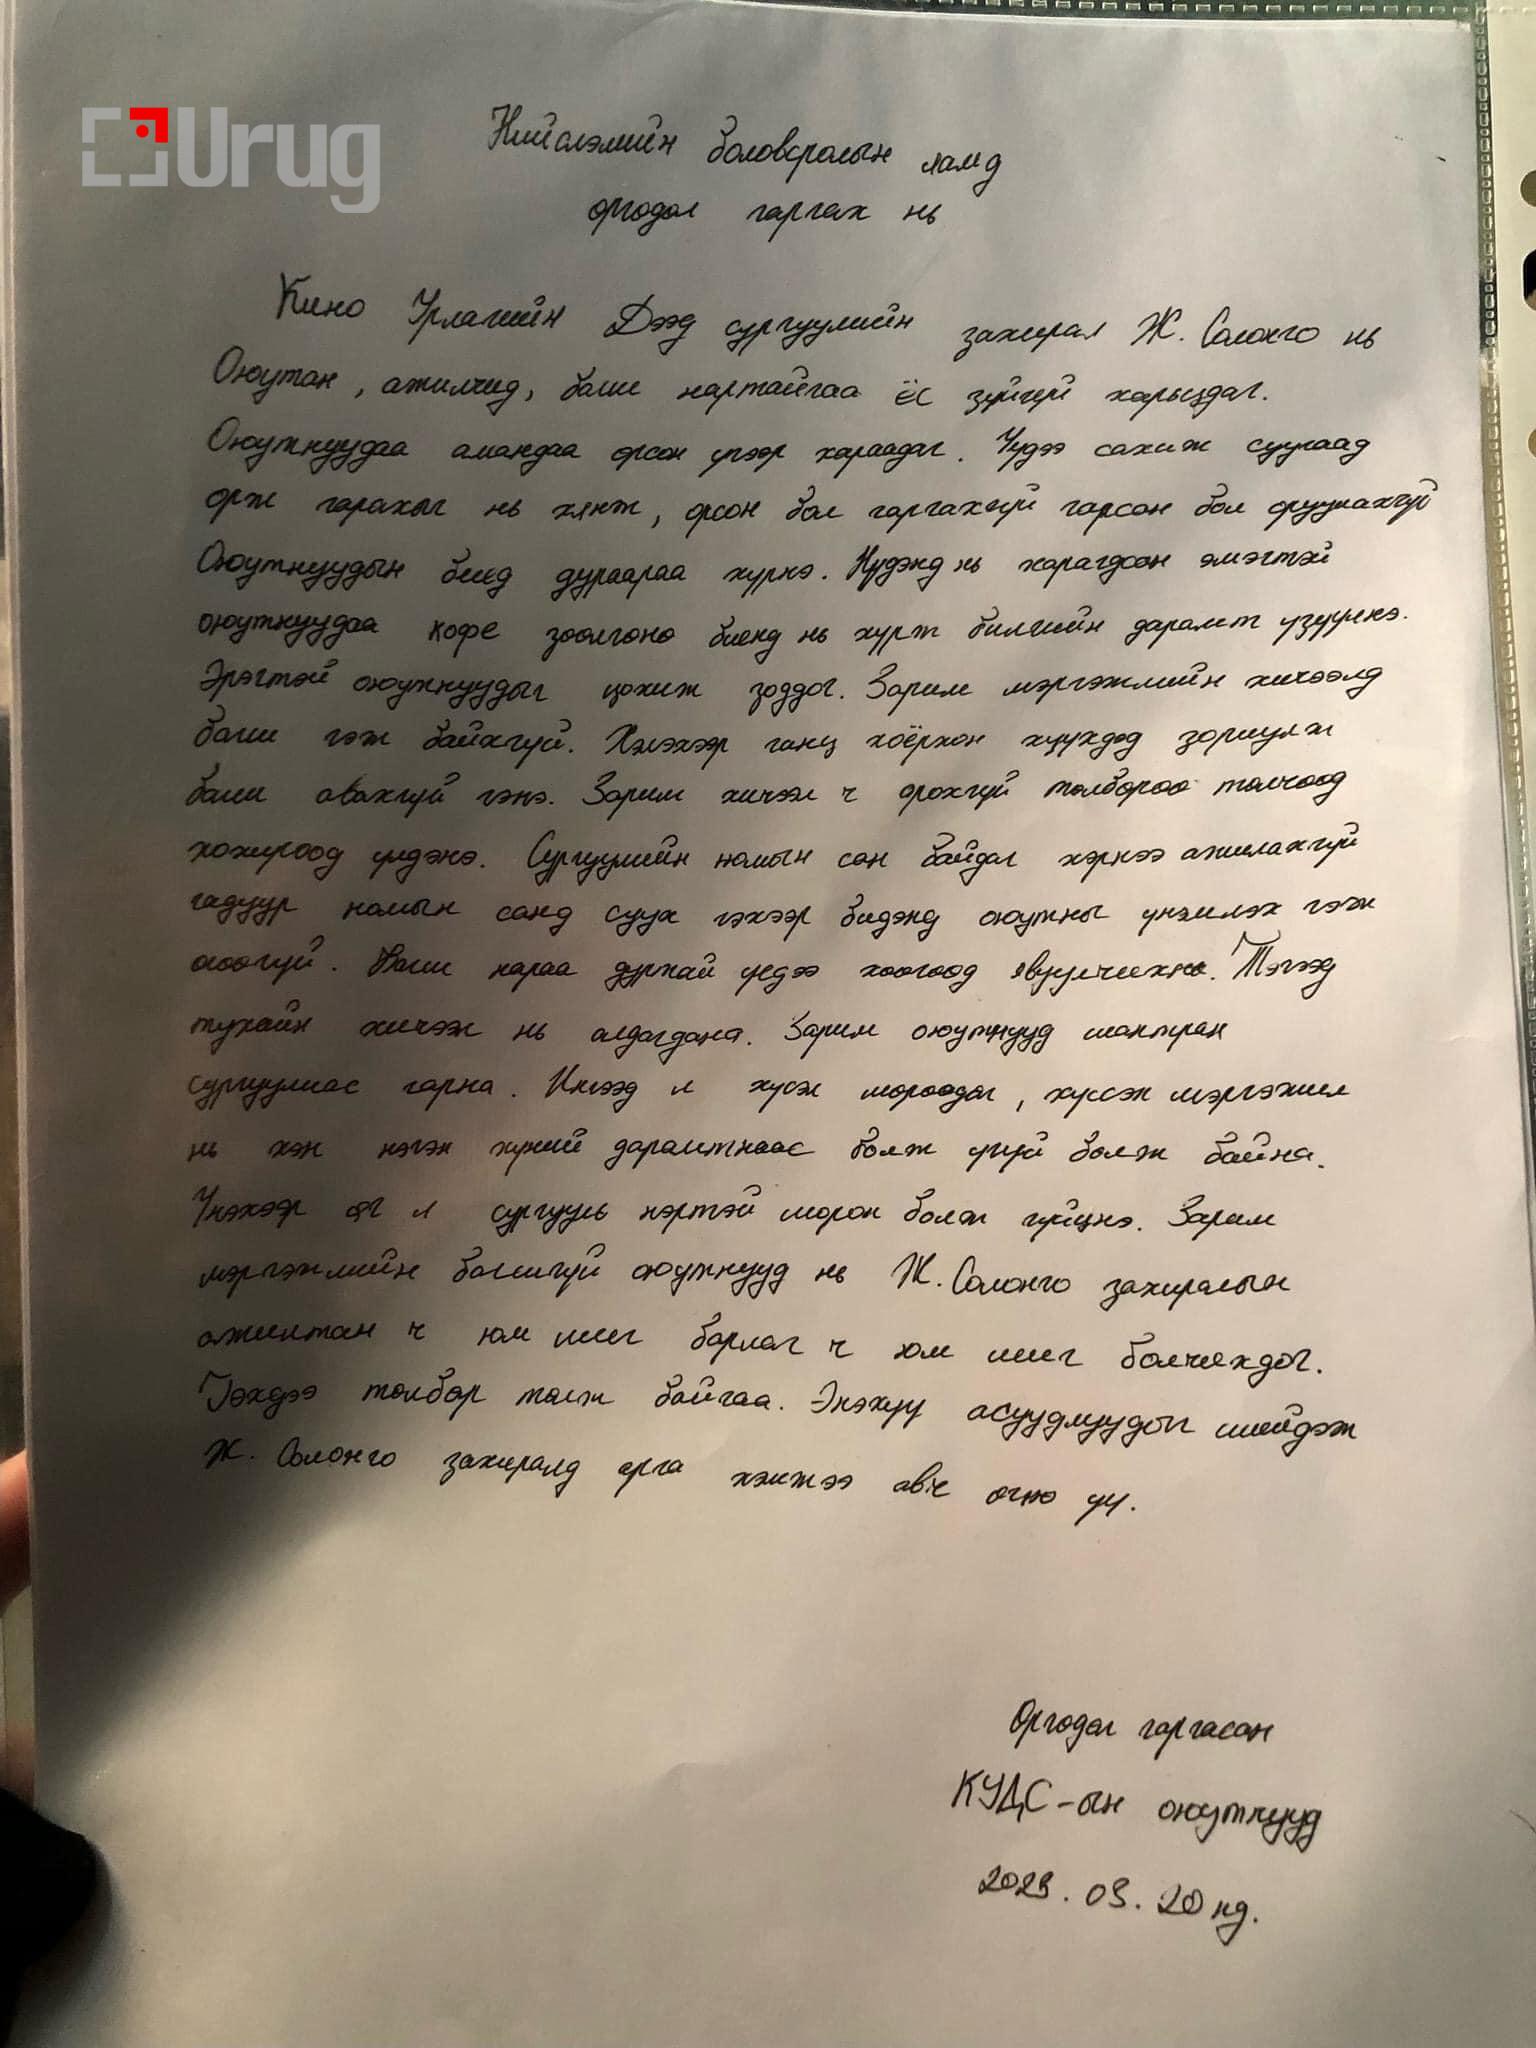 Urug
Нийслэлийн боловсролын газарт
өргөдөл гаргах нь
Кино Урлагийн Дээд сургуулийн захирал Ж. Солонго нь
Оюутан, ажилчид, багш нартайгаа ёс зүйгүй харьцдаг.
Оюутнуудаа амандаа орсон үгээр хараадаг. Үүдээ сахиж суугаад
орж гарахыг нь хянж, орсон бол гаргахгүй гарсан бол оруулахгүй
Оюутнуудын биед дураараа хүрнэ. Нүдэнд нь харагдсан эмэгтэй
оюутнуудаа кофе зоолгоно биенд нь хүрж бэлгийн дарамт үзүүлнэ.
Эрэгтэй оюутнуудыг цохиж зоддог. Зарим мэргэжлийн хичээлд
багш гэж байхгүй. Хэлэхээр ганц хоёрхон хүүхдэд зориулж
багш авахгүй гэнэ. Зарим хичээл ч орохгүй төлбөрөө төлчөөд
хохироод үлдэнэ. Сургуулийн номын сан байдаг хэрнээ ажилахгүй
гадуур номын санд суух гэхээр бидэнд оюутны үнэмлэх гэж
өгөөгүй. Багш нараа дуртай үедээ хөөгөөд явуулчихна. Тэгээд
тухайн хичээл нь алдагдана. Зарим оюутнууд шантран
сургуулиас гарна. Ингээд л хүсэл мөрөөдөл, хүссэн мэргэжил
нь хэн нэгэн хүний дарамтнаас болж үгүй болж байна.
Үнэхээр яг л сургууль нэртэй шорон болж гүйцнэ. Зарим
мэргэжлийн багшгүй оюутнууд нь Ж. Солонго захиралын
ажилтан ч юм шиг барлаг ч юм шиг болчихдог.
Гэхдээ төлбөр төлж байгаа. Энэхүү асуудлуудыг шийдэж
Ж. Солонго захиралд арга хэмжээ авч өгнө үү.
Өргөдөл гаргасан
КУДС-ын оюутнууд
2023. 03. 20 нд.